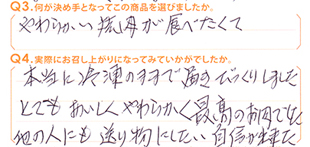 Q3.何が決め手となってこの商品を選びましたか。
やわらかい焼肉が食べたくて
Q4.実際にお召し上がりになってみていかがでしたか。
本当に冷凍のままで届きびっくりしました
とてもおいしくやわらかく最高のお肉でした
他の人にも送り物にしたい自信が出来た